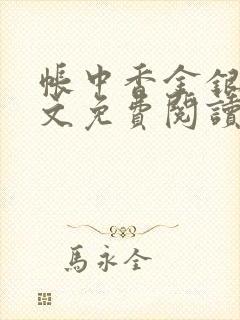 帳中香全銀
文免費閱讀
馬永全